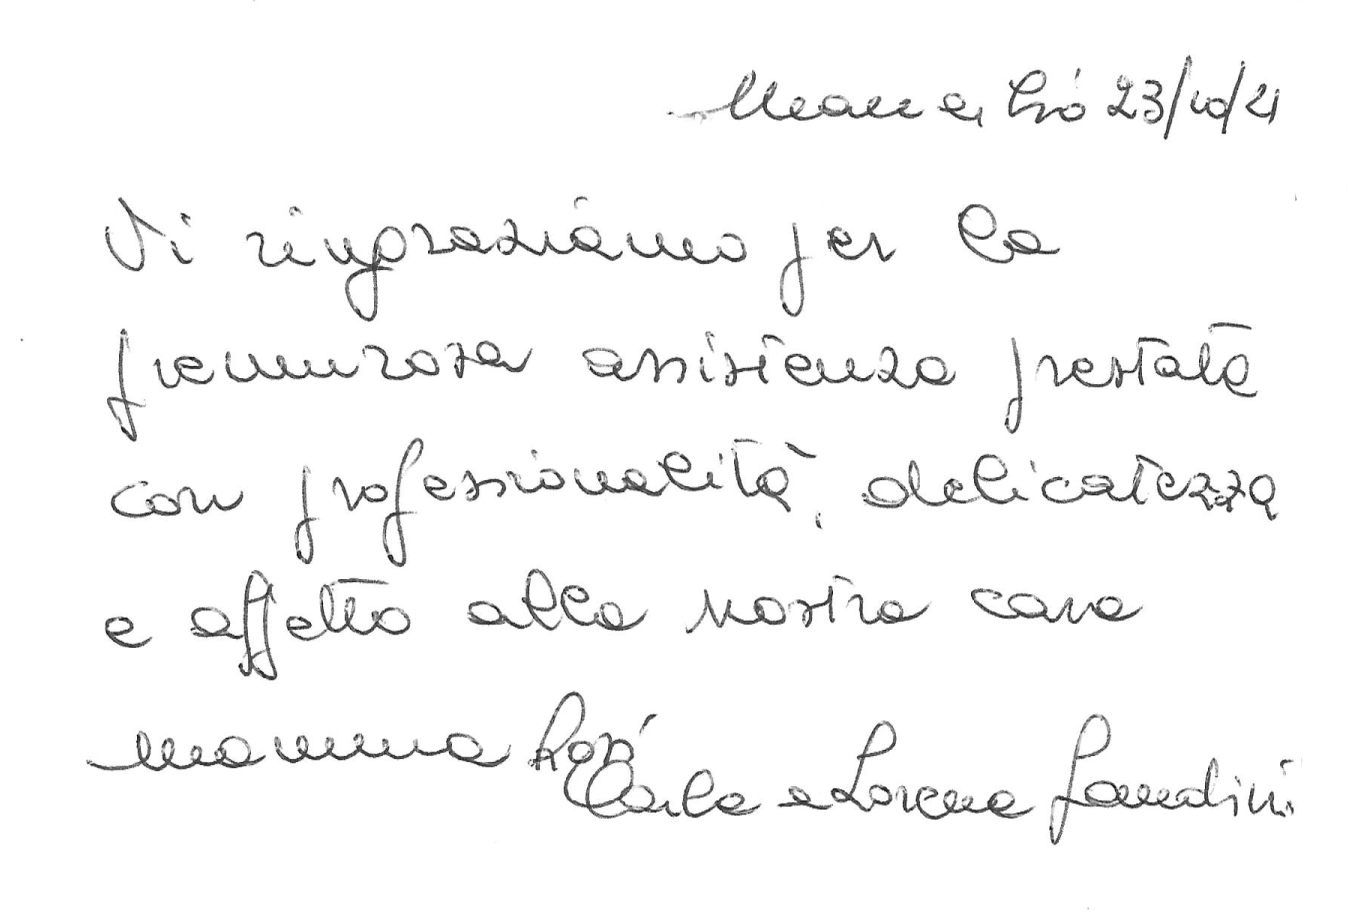 23/10/21
Vi ringraziamo per la
premurosa assistenza prestata
con professionalità, delicatezza
e affetto alla nostra cara
mamma
Carla e Lorena